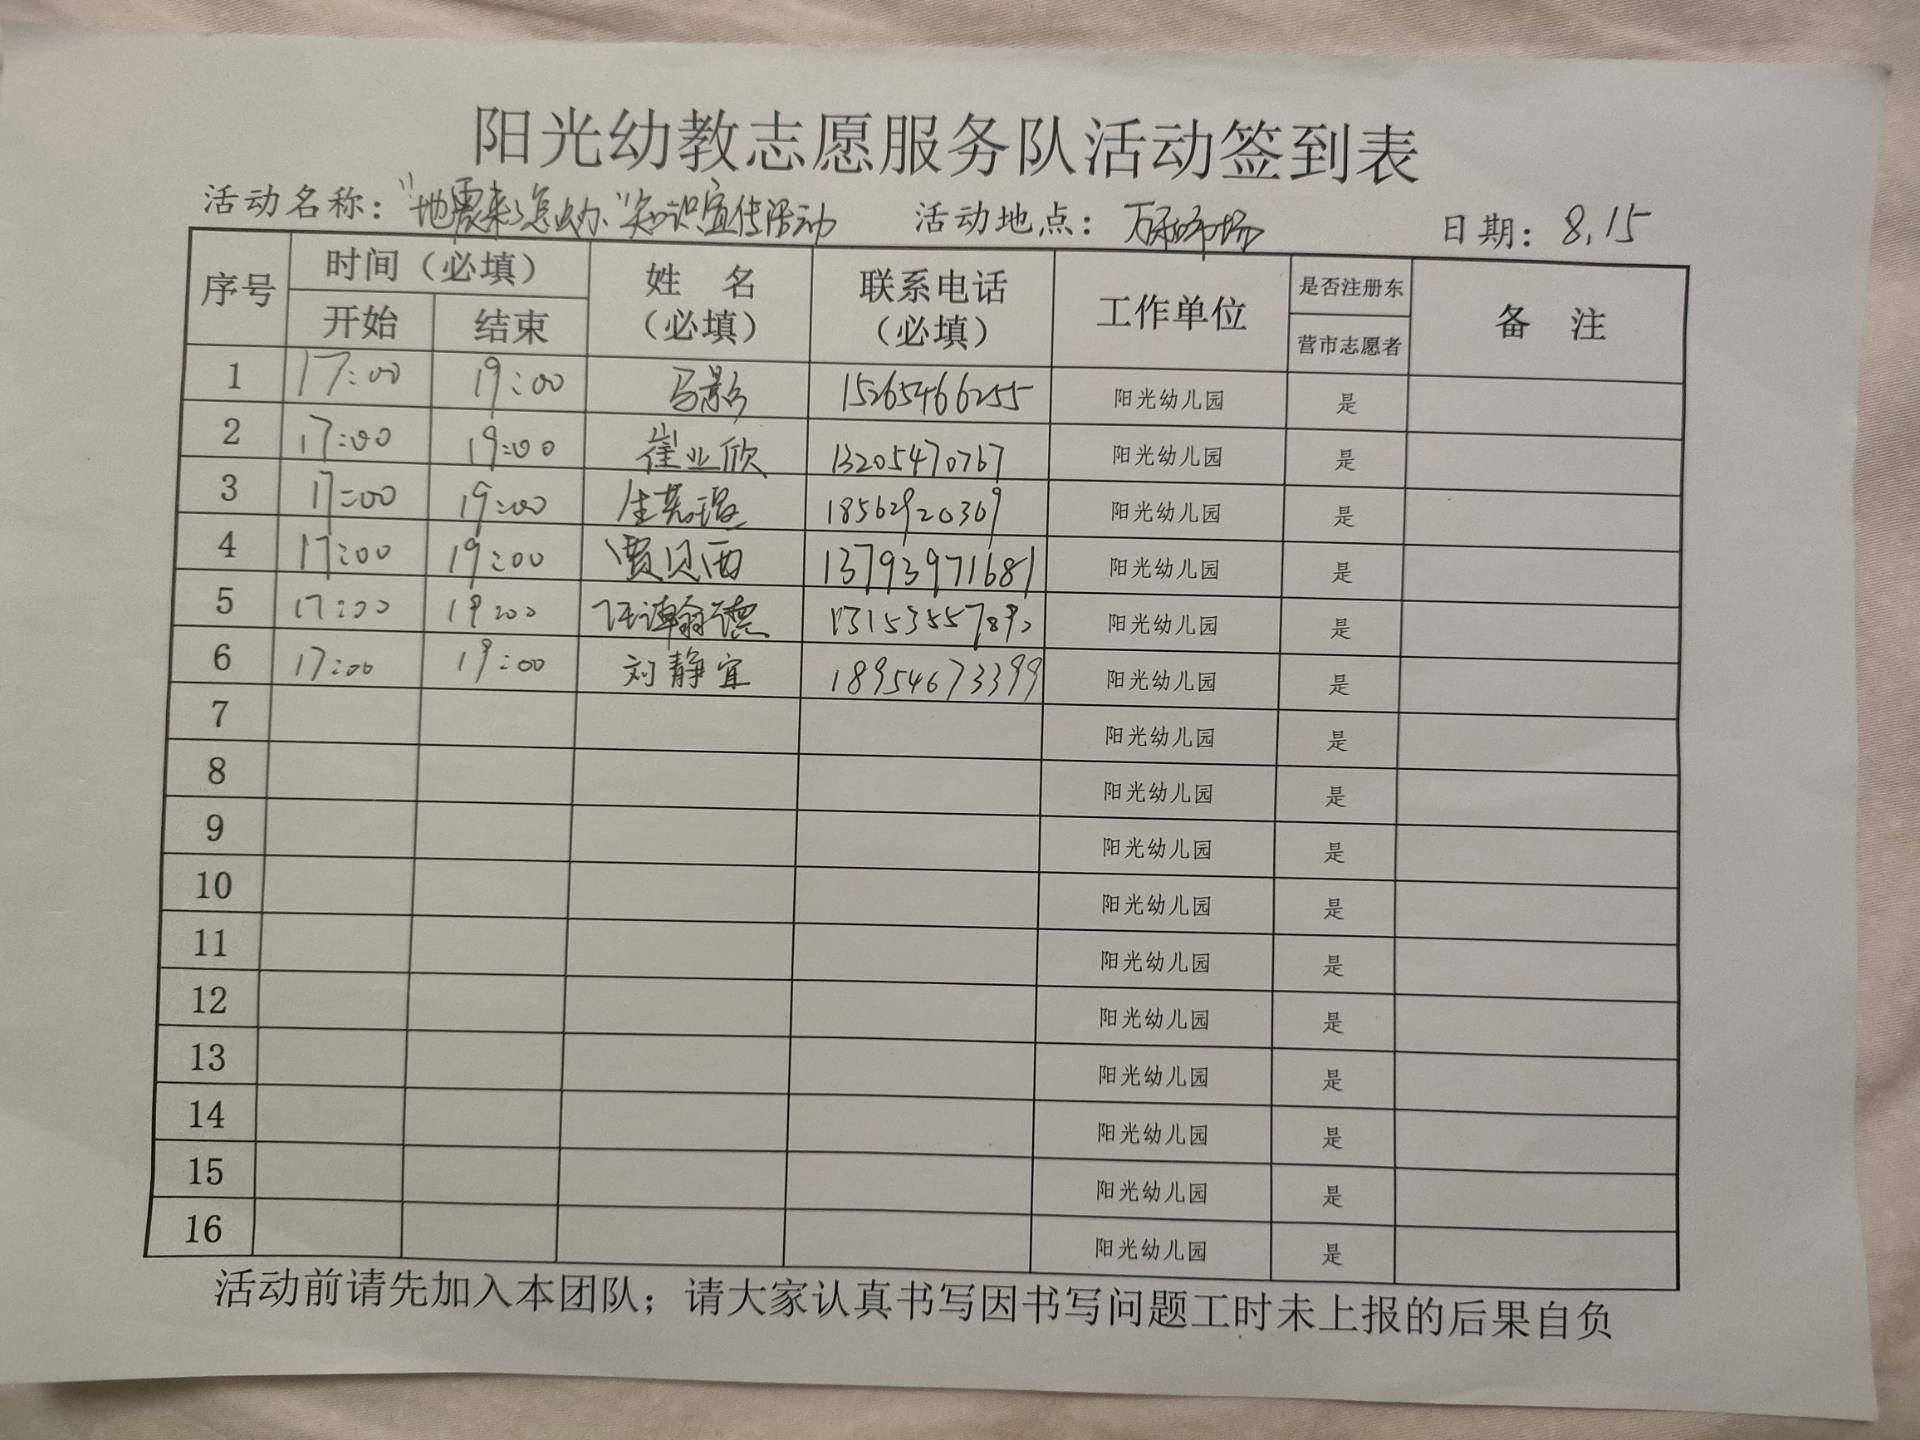 阳光幼教志愿服务队活动签到表
活动名称："地震来了怎么办"知识宣传活动 活动地点：万和市场 日期：8.15
序号 时间（必填） 姓 名（必填） 联系电话（必填） 工作单位 是否注册东营市志愿者 备 注
开始 结束
1 17:00 19:00 马影 15265466255 阳光幼儿园 是
2 17:00 19:00 崔业欣 13205470767 阳光幼儿园 是
3 17:00 19:00 18562920369 阳光幼儿园 是
4 17:00 19:00 贾贝西 13793971681 阳光幼儿园 是
5 17:00 19:00 阳光幼儿园 是
6 17:00 19:00 刘静宜 18954673399 阳光幼儿园 是
7 阳光幼儿园 是
8 阳光幼儿园 是
9 阳光幼儿园 是
10 阳光幼儿园 是
11 阳光幼儿园 是
12 阳光幼儿园 是
13 阳光幼儿园 是
14 阳光幼儿园 是
15 阳光幼儿园 是
16 阳光幼儿园 是
活动前请先加入本团队；请大家认真书写因书写问题工时未上报的后果自负